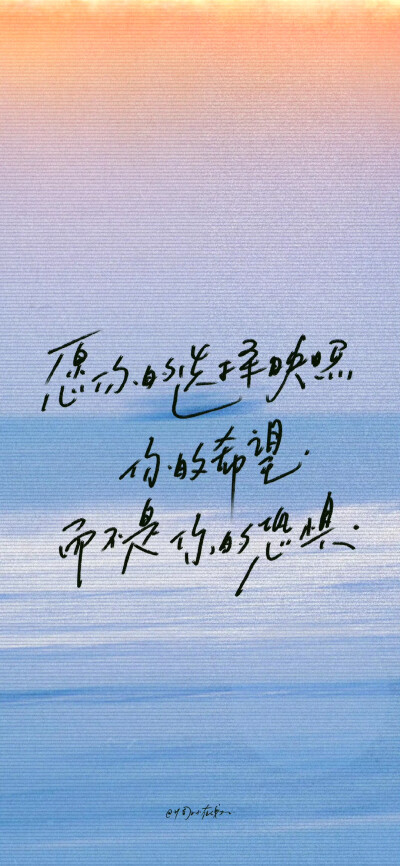 愿你的选择映照
你的希望.
而不是你的恐惧.